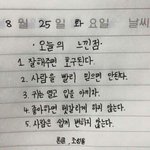 8 월 25 일 화 요일 날씨
오늘의 느낀점
1. 잘해주면 호구된다.
2. 사람을 빨리 믿으면 안된다.
3. 귀는 열고 입을 아끼자.
4. 좋아하면 헷갈리게 하지 않는다.
5. 사람은 쉽게 변하지 않는다.